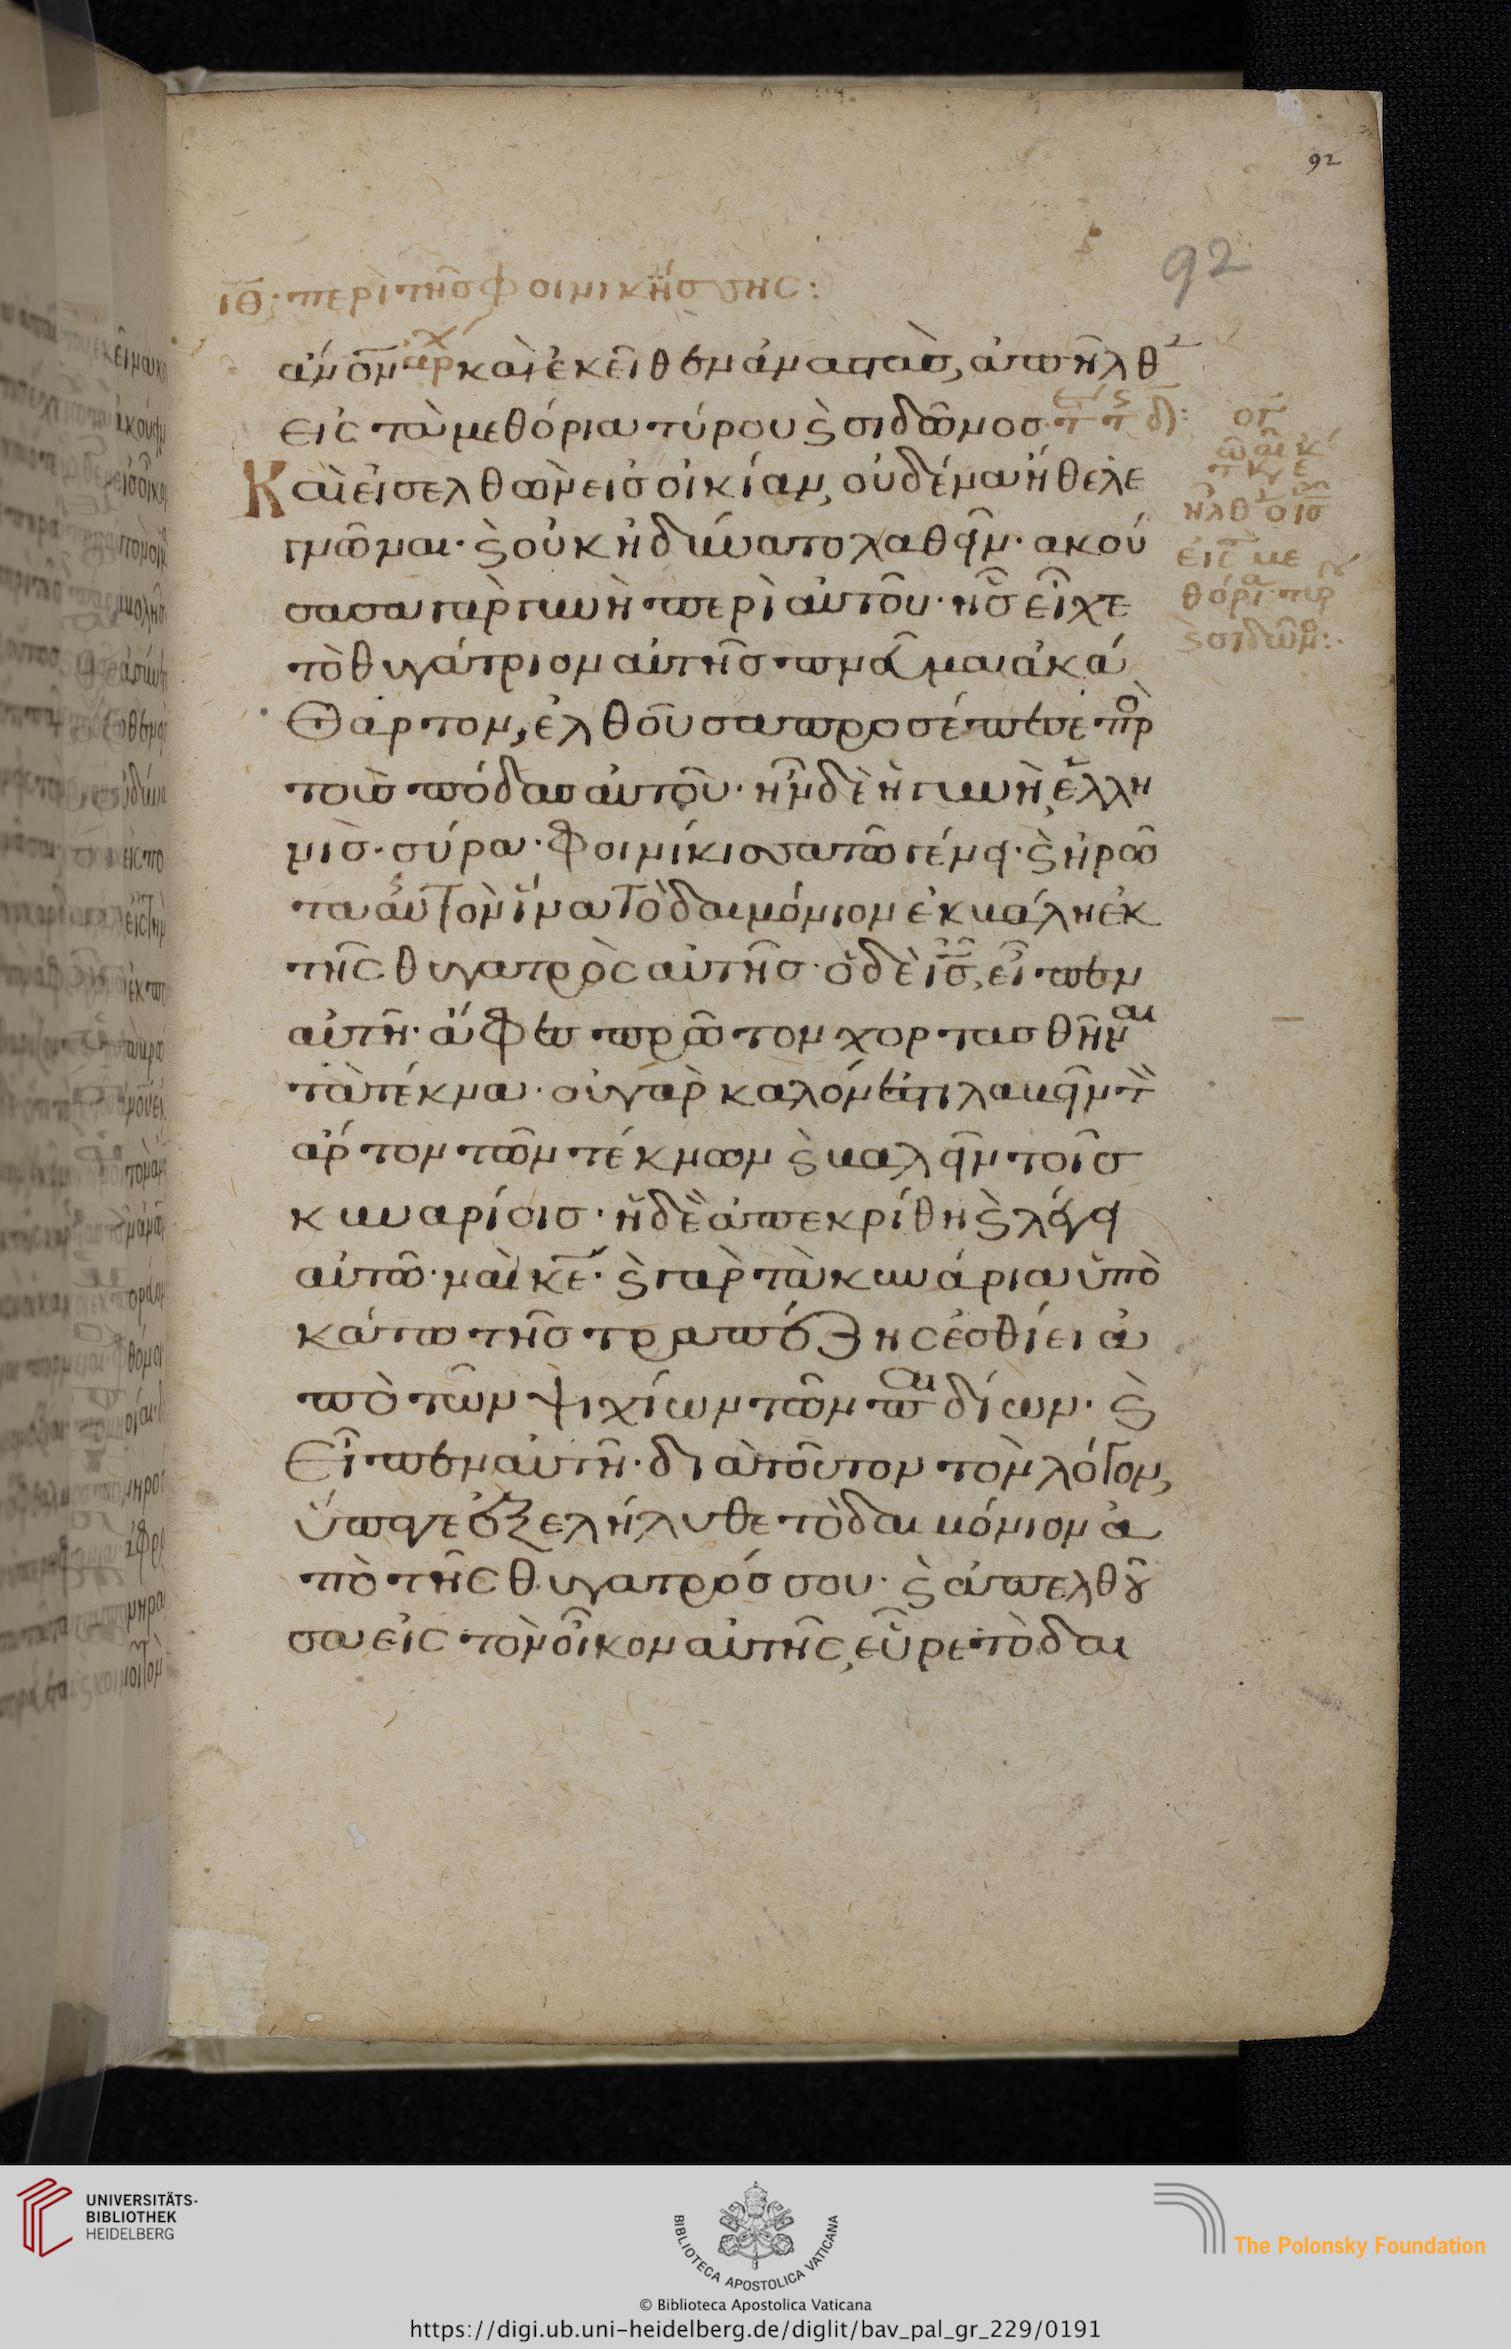 92
92
ιθ· περὶ τῆς φοινικίσσης:
ἄνον αρχ καὶ ἐκεῖθεν ἀναστὰς, ἀπῆλθ
εἰς τὰ μεθόρια τύρου ϗ σιδῶνος·
Καὶ εἰσελθὼν εἰς οἰκίαν, οὐδένα ἤθελε
γνῶναι· ϗ οὐκ ἠδύνατο λαθεῖν· ακού
σασα γὰρ γυνὴ περὶ αὐτοῦ· ἧς εἶχε
τὸ θυγάτριον αὐτῆς πνα ακά
θαρτον, ἐλθοῦσα προσέπεσε πρ
τοὺς πόδας αὐτοῦ· ἦν δὲ ἡ γυνὴ, ἑλλη
νὶς· σύρα· φοινίκισσα τῶ γένει· ϗ ἠρώ
τα αὐτὸν ἵνα τὸ δαιμόνιον ἐκβάλη ἐκ
τῆς θυγατρὸς αὐτῆς· ὁ δὲ ις, εἶπεν
αὐτῆ· ἄφες πρῶτον χορτασθῆναι
τὰ τέκνα· οὐ γὰρ καλόν ἐστι λαβεῖν τ
ἄρτον τῶν τέκνων ϗ βαλεῖν τοῖς
κυναρίοις· ἡ δὲ ἀπεκρίθη ϗ λέγει
αὐτῶ· ναὶ κε· ϗ γὰρ τὰ κυνάρια ὑπο
κάτω τῆς τραπέζης ἐσθίει ἀ
πὸ τῶν ψιχίων τῶν παιδίων· ϗ
εἶπεν αὐτῆ· διὰ τοῦτον τὸν λόγον,
ὕπαγε ἐξελήλυθε τὸ δαιμόνιον ἀ
πὸ τῆς θυγατρός σου· ϗ ἀπελθοῦ
σα εἰς τὸν οἶκον αὐτῆς, εὗρε τὸ δαι
ηλθ ο ις
εις με
θόρι τυρ
ϗ σιδῶν:
UNIVERSITÄTS-
BIBLIOTHEK
HEIDELBERG
BIBLIOTECA APOSTOLICA VATICANA
The Polonsky Foundation
© Biblioteca Apostolica Vaticana
https://digi.ub.uni-heidelberg.de/diglit/bav_pal_gr_229/0191